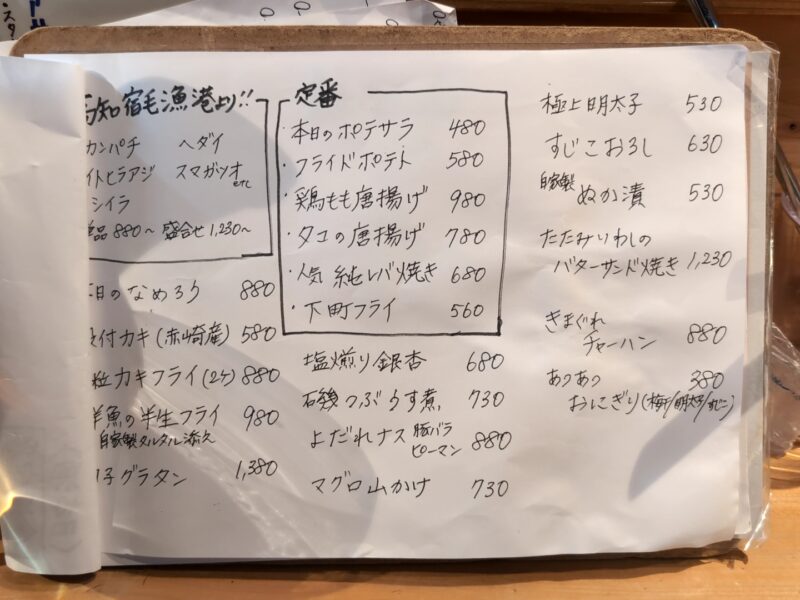 知宿毛漁港より!!
カンパチ ヘダイ
イトヒラアジ スマガツオ etc
シイラ
品880〜 盛合せ1,230〜
日のなめろう 880
付カキ(赤崎産) 580
粒カキフライ(2ケ) 880
魚の半生フライ 980
自家製タルタル添え
子グラタン 1,380
定番
・本日のポテサラ 480
・フライドポテト 580
・鶏もも唐揚げ 980
・タコの唐揚げ 780
・人気 純レバ焼き 680
・下町フライ 560
塩煎り銀杏 680
石磯つぶうす煮 730
よだれナス 豚バラ ピーマン 880
マグロ山かけ 730
極上明太子 530
すじこおろし 630
自家製 ぬか漬 530
たたみいわしの
バターサンド焼き 1,230
きまぐれ
チャーハン 880
あつあつ 380
おにぎり(梅干/明太子/すじこ)